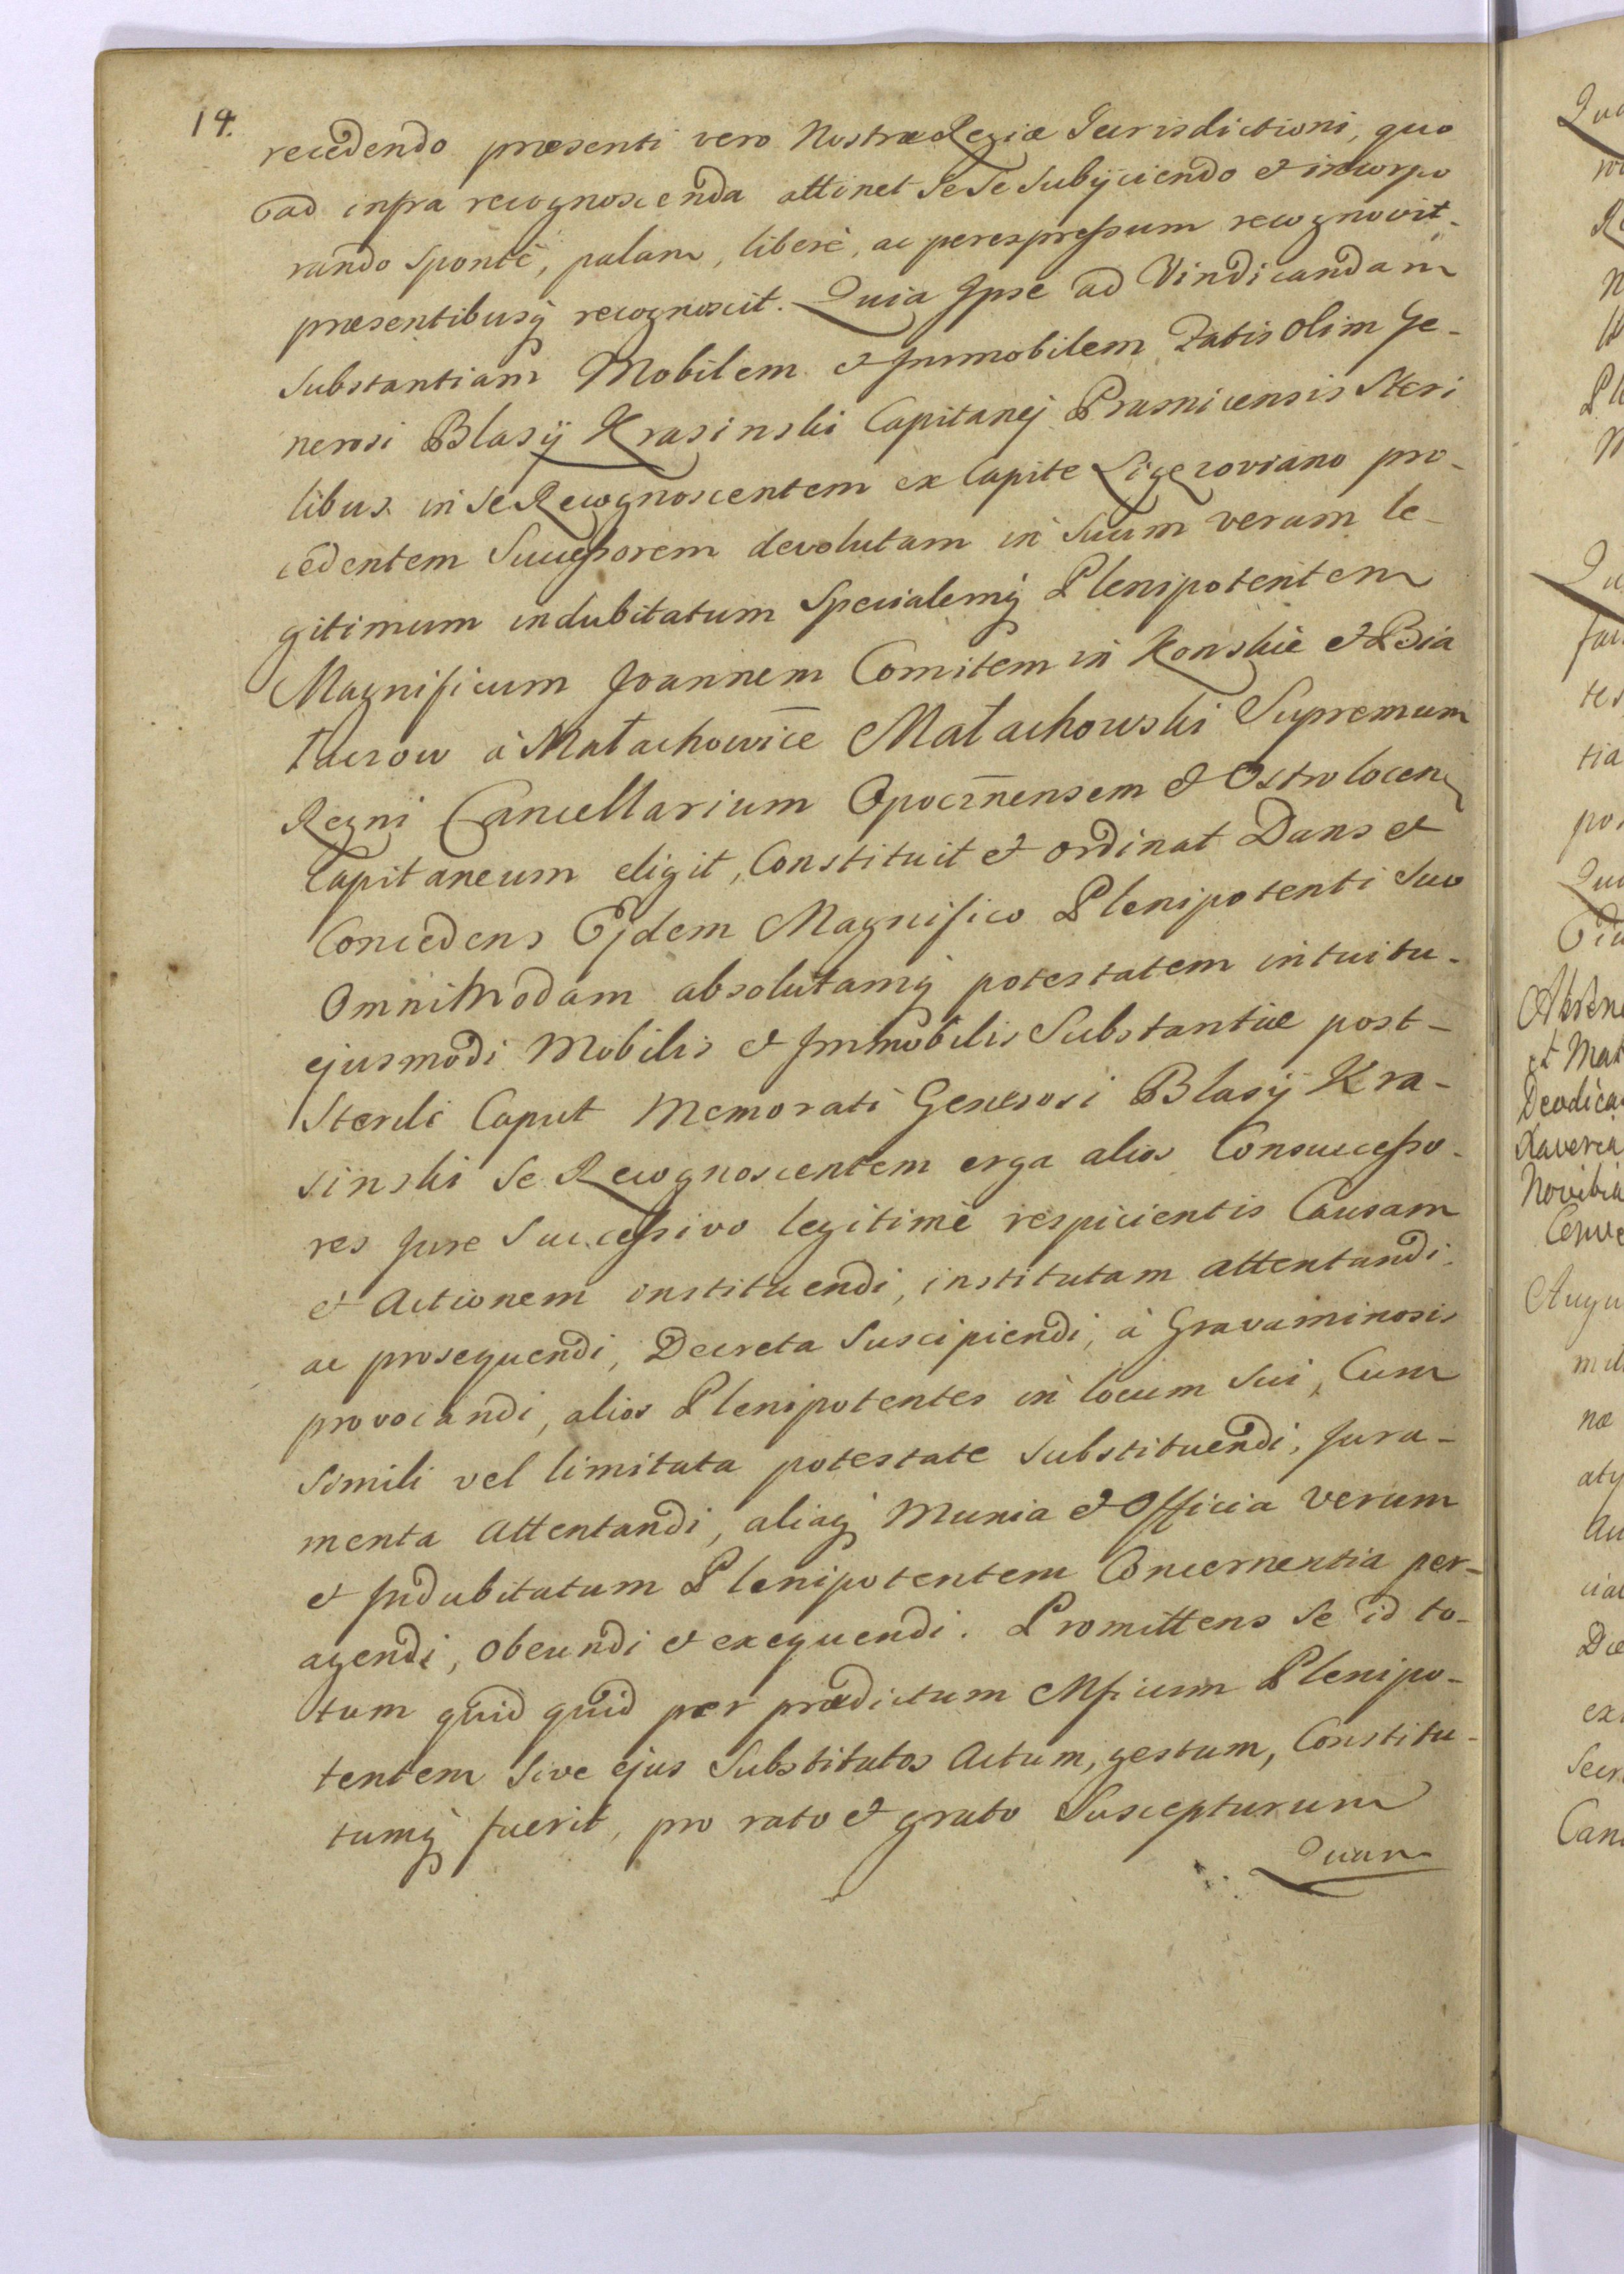 14.
recedendo præsenti vero Nostræ Regiæ Jurisdictioni, quo
ad infra recognoscenda attinet Se Se Subijciendo et incorpo
rando Sponte, palam, liberè, ac perexpressum recognovit
præsentibusq recognoscit. Quia Ipse ad Vindicandam
Substantiam Mobilem et Immobilem Fatis olim Ge-
nerosi Blasij Krasinski Capitanej Prasnicensis Steri
libus in Se Recognoscentem ex Capite Ligezoviano pro-
cedentem Successorem devolutam in Suum verum le-
gitimum indubitatum Specialemq Plenipotentem
Magnificum Joannem Comitem in Konskie et Bia
łaczow à Małachowice Małachowski Supremum
Regni Cancellarium Opocznensem et Ostrolocen
Capitaneum eligit, Constituit et ordinat Dans et
Concedens Ejdem Magnifico Plenipotenti Suo
Omnimodam absolutamq potestatem intuitu
ejusmodi Mobilis et Immobilis Substantiæ post-
Sterile Caput Memorati Generosi Blasij Kra-
sinski Se Recognoscentem erga alios Consuccesso-
res Jure Successivo legitimè respicientis Causam
et Actionem instituendi, institutam attentandi
ac prosequendi, Decreta Suscipiendi, à Gravaminosis
provocandi, alios Plenipotentes in locum Sui, Cum
Simili vel limitata potestate Substituendi, Jura-
menta Attentandi, aliaq Munia et Officia Verum
et Indubitatum Plenipotentem Concernentia per-
agendi, Obeundi et exequendi. Promittens Se id to-
tum quid quid per prædictum Mficum Plenipo-
tentem Sive ejus Substitutos Actum, gestum, Constitu-
tumq fuerit, pro rato et grato Suscepturum
Quam